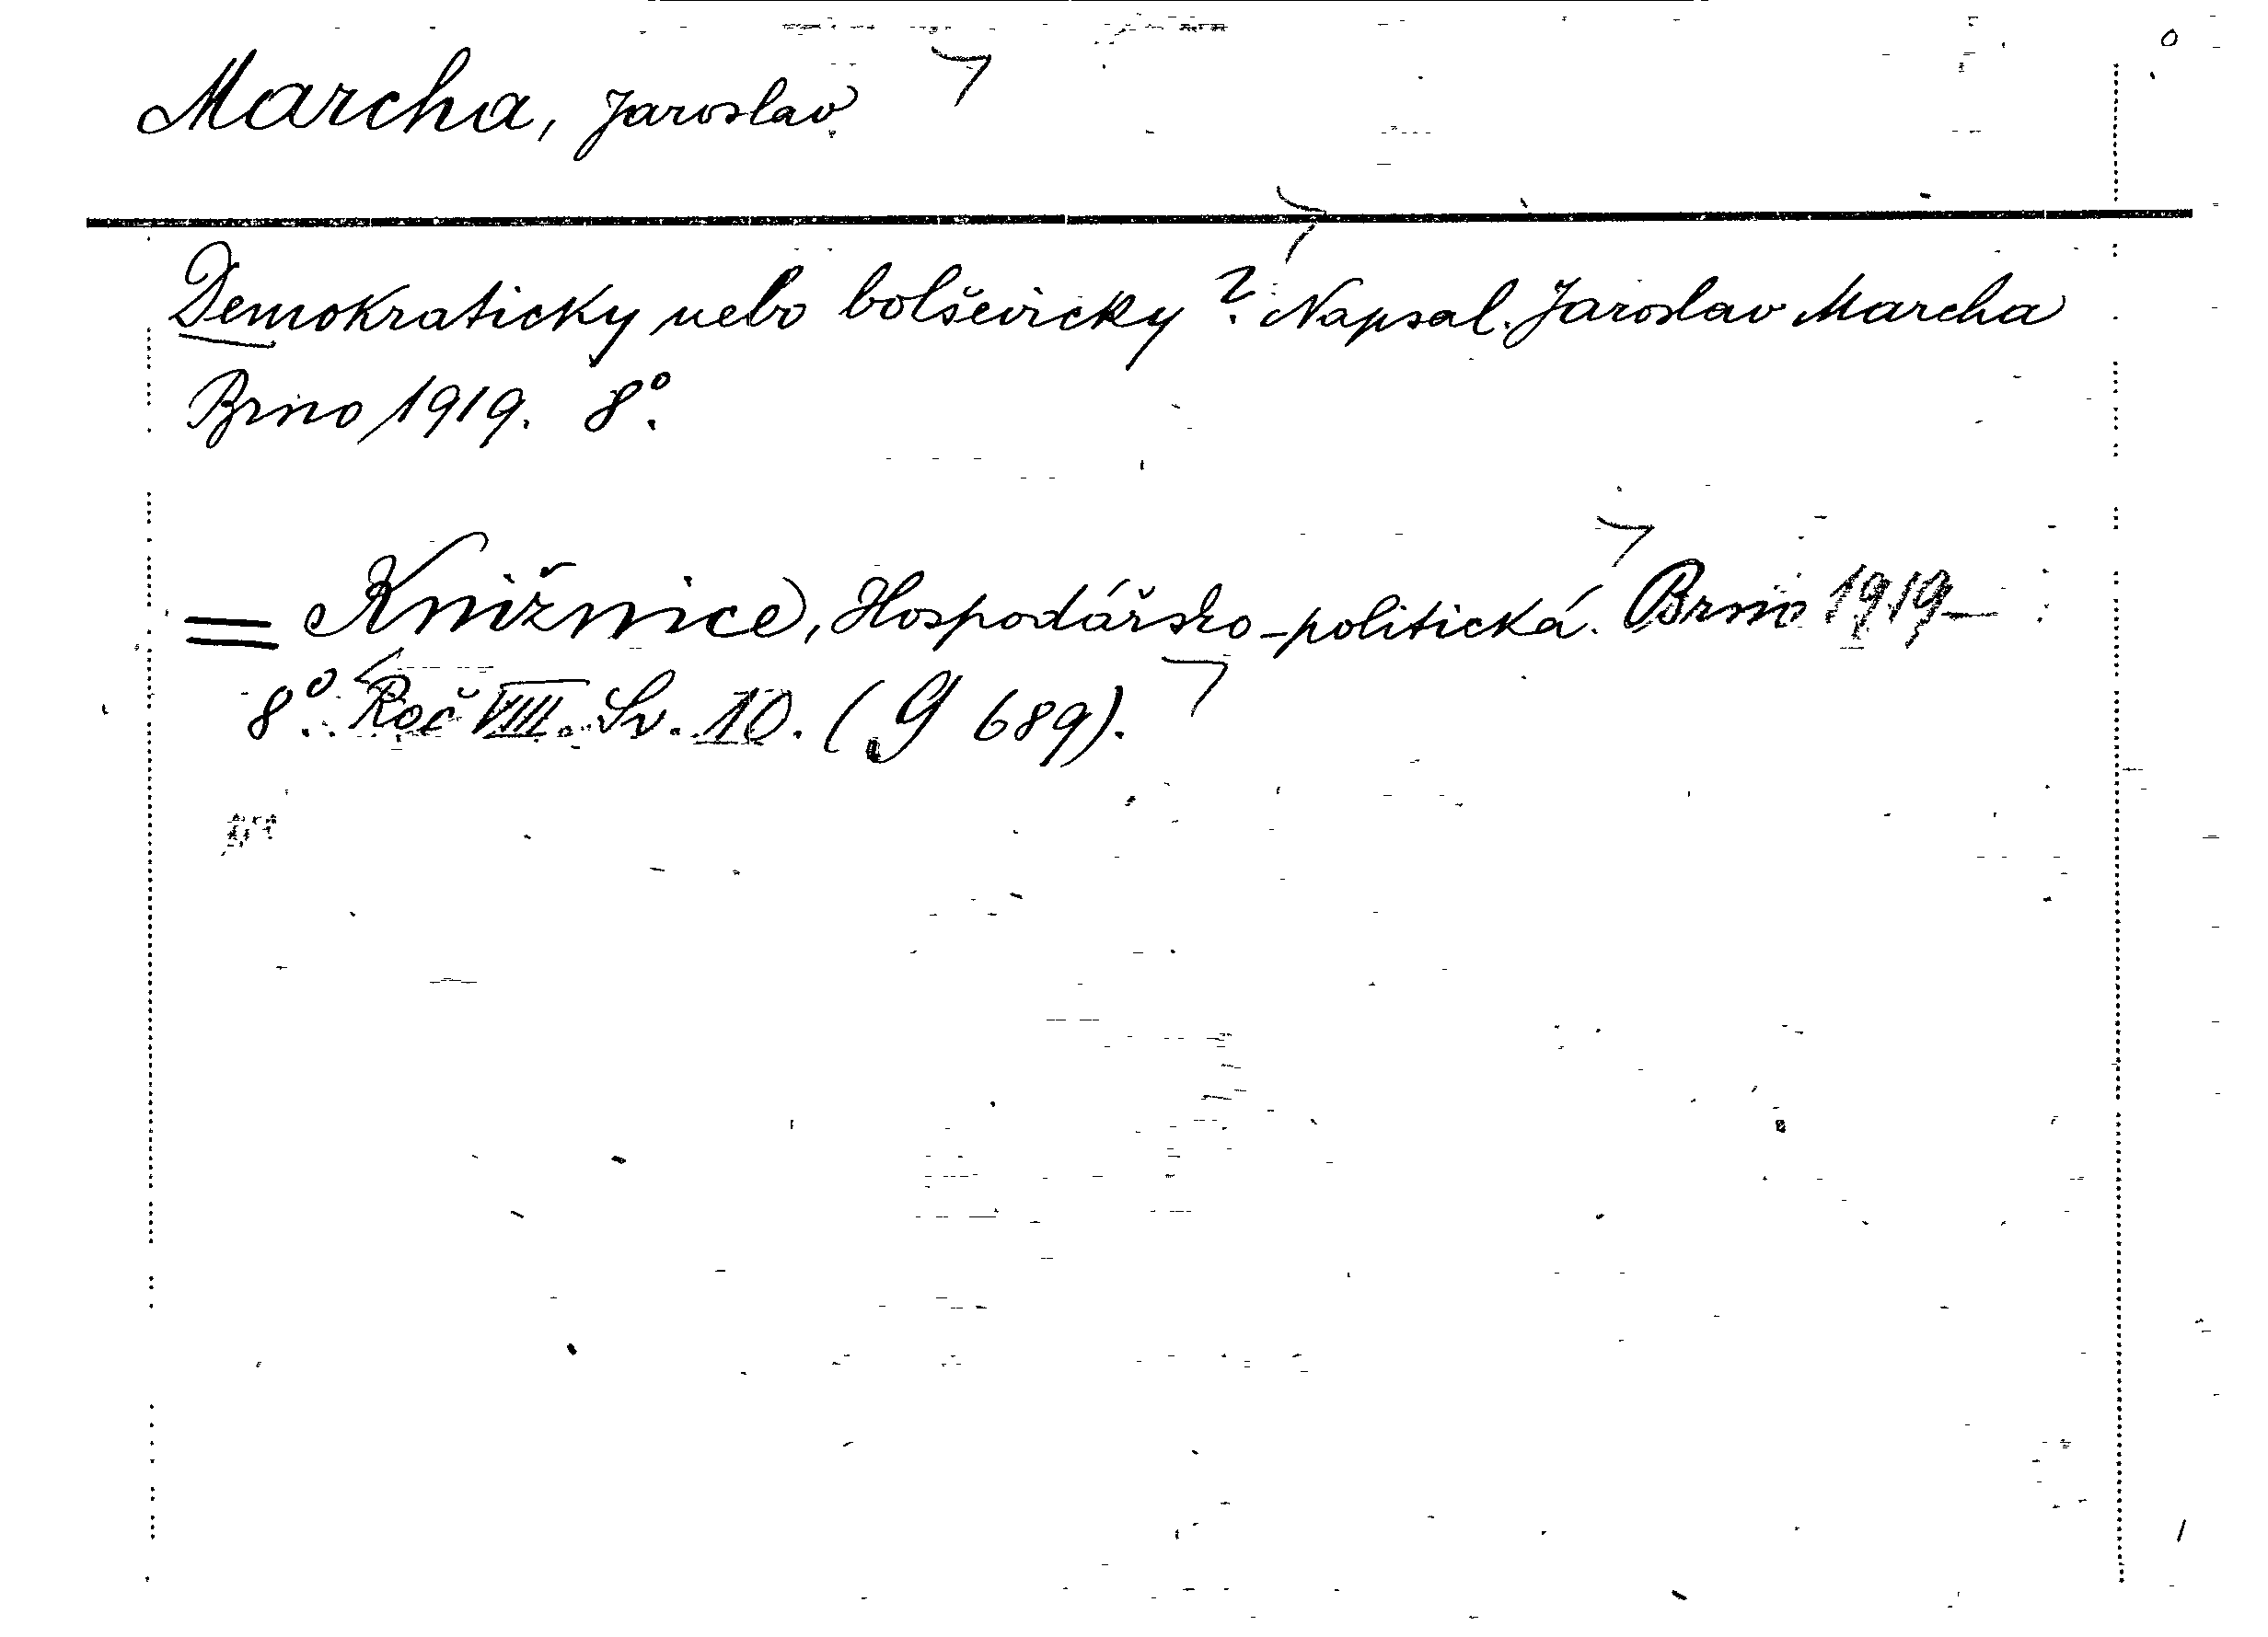 Marcha, Jaroslav
Demokraticky nebo bolševicky? Napsal Jaroslav Marcha
Brno 1919. 8°.
= Knižnice, Hospodářsko-politická. Brno 1919-
8°. Roč VIII. Sv. 10. (G 689).